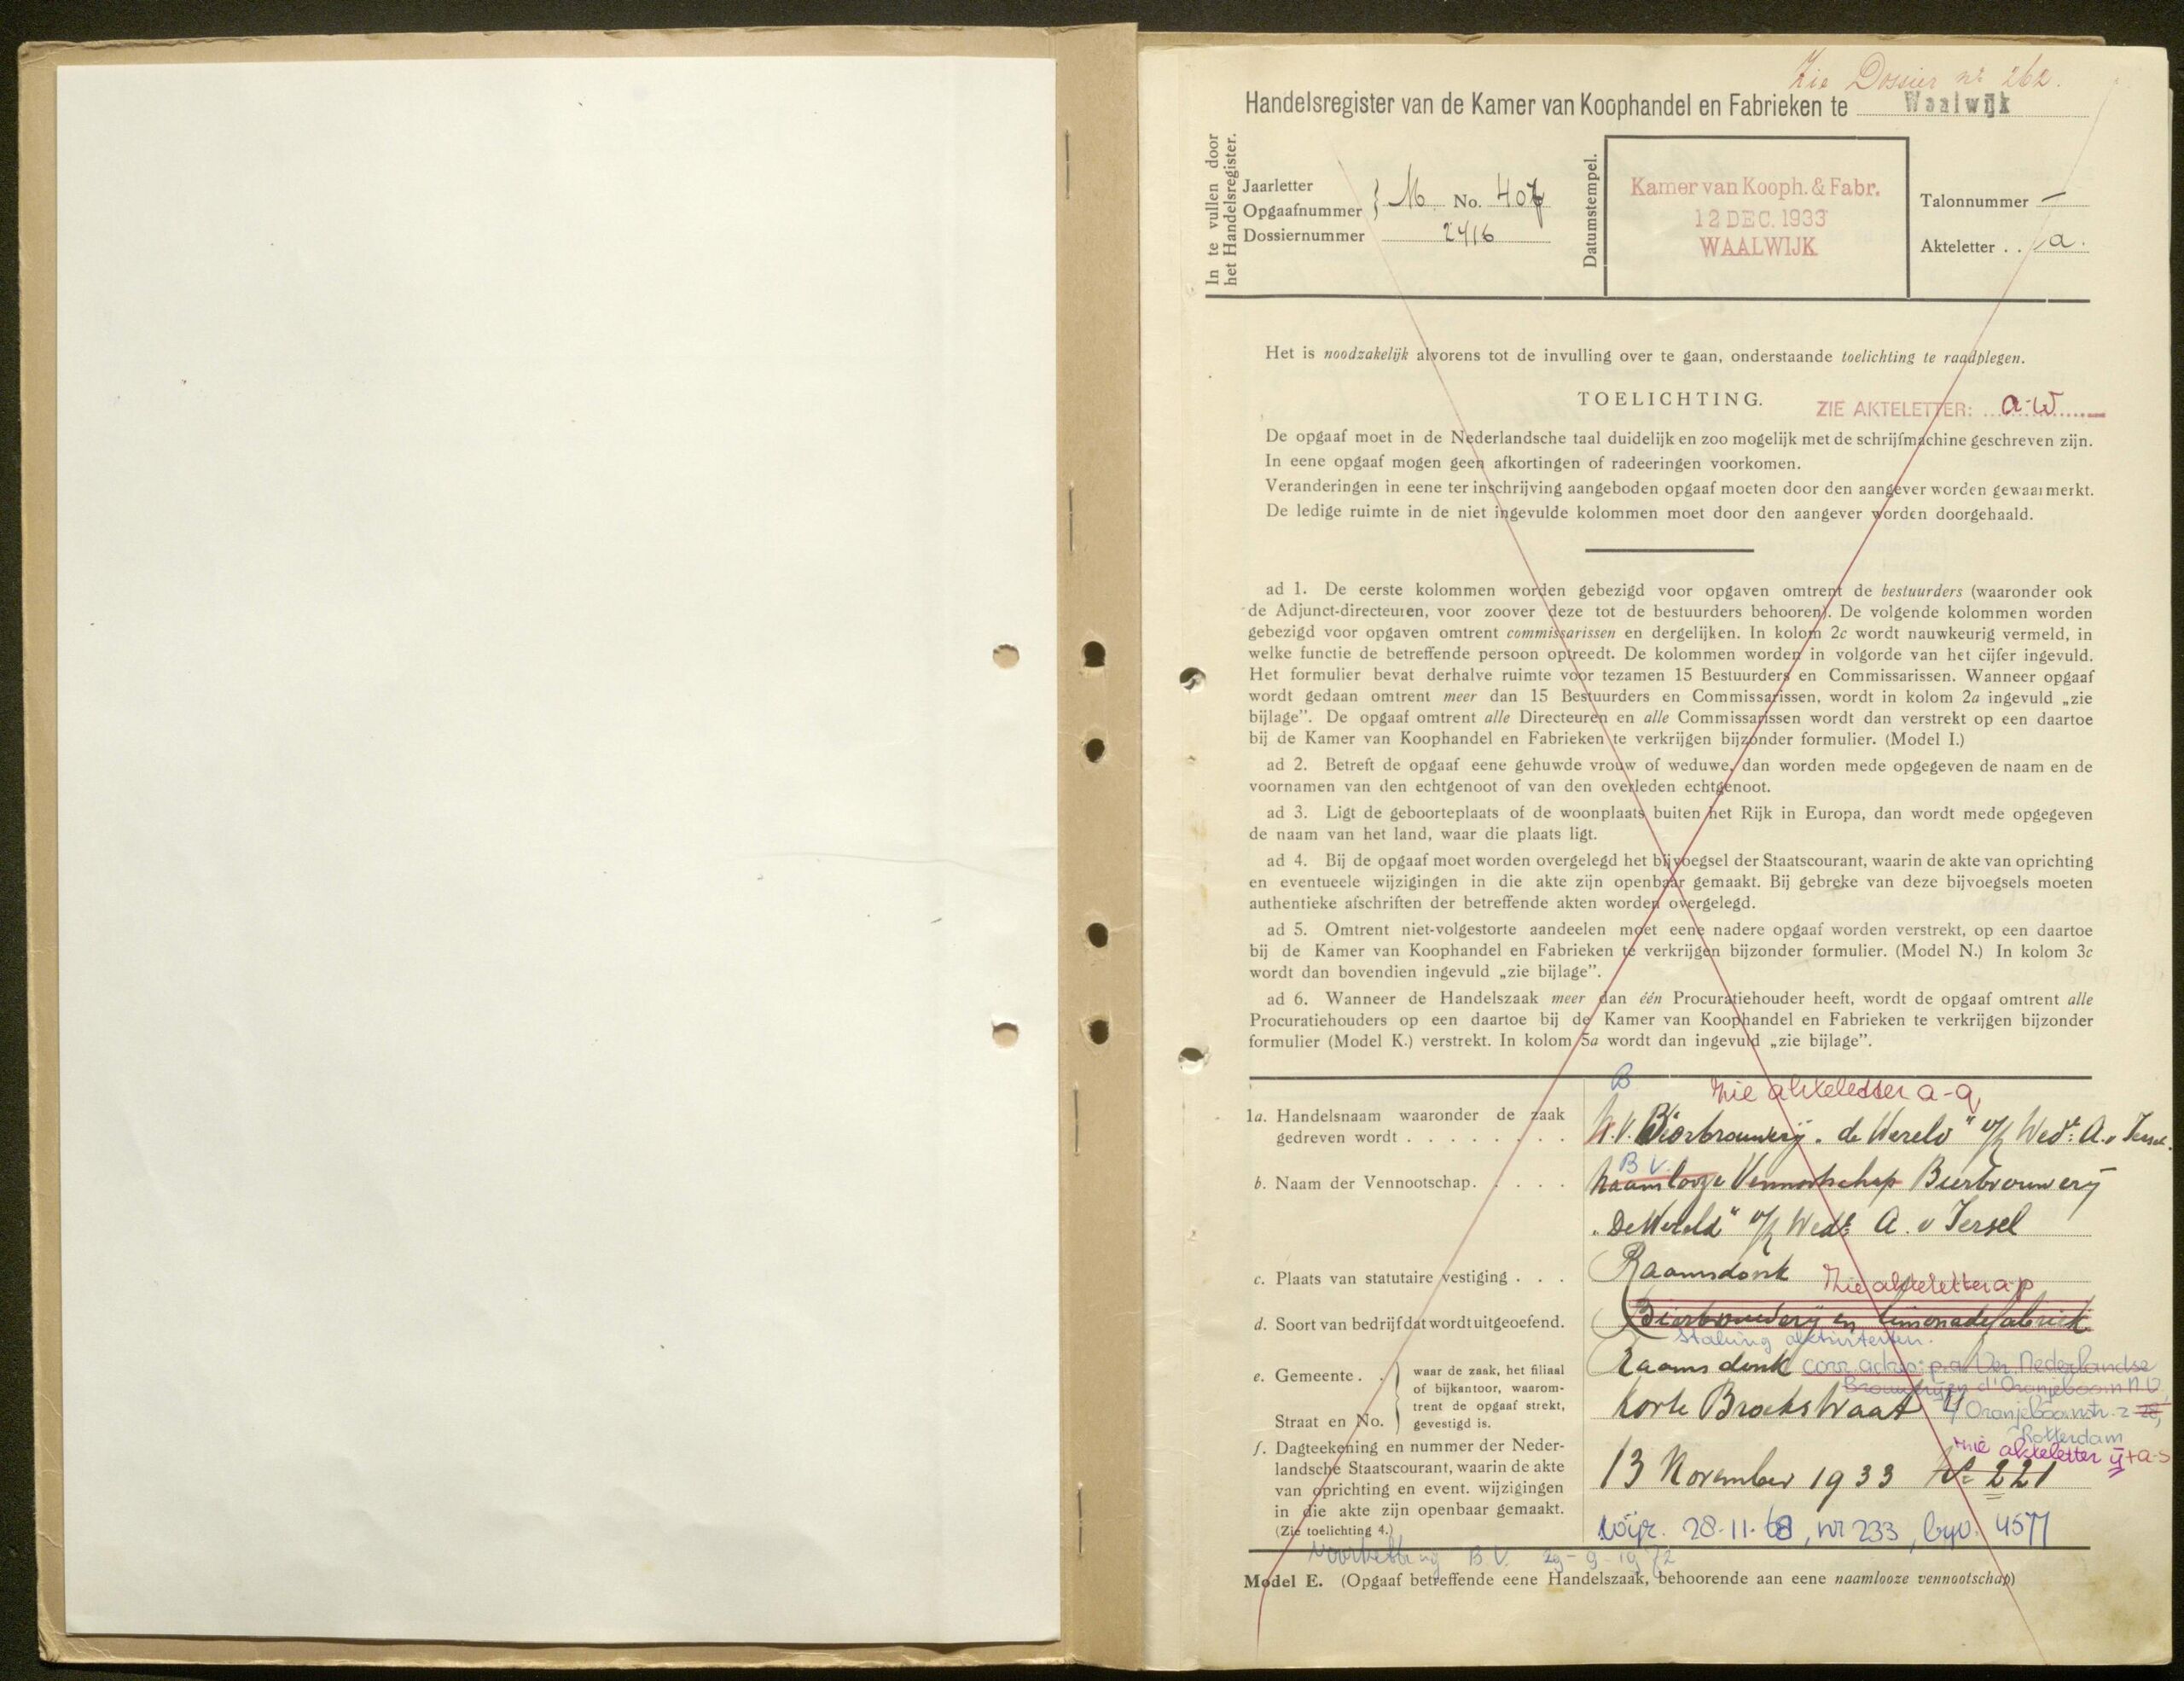 Zie Dossier nr 262.
Handelsregister van de Kamer van Koophandel en Fabrieken te Waalwijk
In te vullen door
het Handelsregister.
Jaarletter
Opgaafnummer } M No. 407
Dossiernummer 2416
Datumstempel.
Kamer van Kooph. & Fabr.
12 DEC. 1933
WAALWIJK
Talonnummer —
Akteletter . . a.
Het is noodzakelijk alvorens tot de invulling over te gaan, onderstaande toelichting te raadplegen.
TOELICHTING.
ZIE AKTELETTER: a-w
De opgaaf moet in de Nederlandsche taal duidelijk en zoo mogelijk met de schrijfmachine geschreven zijn.
In eene opgaaf mogen geen afkortingen of radeeringen voorkomen.
Veranderingen in eene ter inschrijving aangeboden opgaaf moeten door den aangever worden gewaarmerkt.
De ledige ruimte in de niet ingevulde kolommen moet door den aangever worden doorgehaald.
ad 1. De eerste kolommen worden gebezigd voor opgaven omtrent de bestuurders (waaronder ook
de Adjunct-directeuren, voor zoover deze tot de bestuurders behooren). De volgende kolommen worden
gebezigd voor opgaven omtrent commissarissen en dergelijken. In kolom 2c wordt nauwkeurig vermeld, in
welke functie de betreffende persoon optreedt. De kolommen worden in volgorde van het cijfer ingevuld.
Het formulier bevat derhalve ruimte voor tezamen 15 Bestuurders en Commissarissen. Wanneer opgaaf
wordt gedaan omtrent meer dan 15 Bestuurders en Commissarissen, wordt in kolom 2a ingevuld „zie
bijlage”. De opgaaf omtrent alle Directeuren en alle Commissarissen wordt dan verstrekt op een daartoe
bij de Kamer van Koophandel en Fabrieken te verkrijgen bijzonder formulier. (Model I.)
ad 2. Betreft de opgaaf eene gehuwde vrouw of weduwe, dan worden mede opgegeven de naam en de
voornamen van den echtgenoot of van den overleden echtgenoot.
ad 3. Ligt de geboorteplaats of de woonplaats buiten het Rijk in Europa, dan wordt mede opgegeven
de naam van het land, waar die plaats ligt.
ad 4. Bij de opgaaf moet worden overgelegd het bijvoegsel der Staatscourant, waarin de akte van oprichting
en eventueele wijzigingen in die akte zijn openbaar gemaakt. Bij gebreke van deze bijvoegsels moeten
authentieke afschriften der betreffende akten worden overgelegd.
ad 5. Omtrent niet-volgestorte aandeelen moet eene nadere opgaaf worden verstrekt, op een daartoe
bij de Kamer van Koophandel en Fabrieken te verkrijgen bijzonder formulier. (Model N.) In kolom 3c
wordt dan bovendien ingevuld „zie bijlage”.
ad 6. Wanneer de Handelszaak meer dan één Procuratiehouder heeft, wordt de opgaaf omtrent alle
Procuratiehouders op een daartoe bij de Kamer van Koophandel en Fabrieken te verkrijgen bijzonder
formulier (Model K.) verstrekt. In kolom 5a wordt dan ingevuld „zie bijlage”.
B. Zie akteletter a-q
1a. Handelsnaam waaronder de zaak
gedreven wordt . . . . . . . . N.V. Bierbrouwerij „de Wereld" v/h Wed: A. v Iersel.
B V.
b. Naam der Vennootschap. . . . . Naamlooze Vennootschap Bierbrouwerij
„De Wereld" v/h Wed: A. v Iersel
c. Plaats van statutaire vestiging . . . Raamsdonk Zie akteletter a-p
d. Soort van bedrijf dat wordt uitgeoefend. Bierbrouwerij en limonadefabriek
Staking aktiviteiten.
e. Gemeente . . Raamsdonk corr. adres: p.a. Ver. Nederlandse
Brouwerijen d'Oranjeboom N.V.
Straat en No. Korte Broekstraat 4 Oranjeboomstr. 2 28,
Rotterdam
waar de zaak, het filiaal
of bijkantoor, waarom-
trent de opgaaf strekt,
gevestigd is.
Zie akteletter ij + a-s
f. Dagteekening en nummer der Neder-
landsche Staatscourant, waarin de akte
van oprichting en event. wijzigingen
in die akte zijn openbaar gemaakt.
(Zie toelichting 4.)
13 November 1933 No 221
wijz. 28-11-68, nr 233, byv. 4577
Voortzetting B.V. 29-9-1972
Model E. (Opgaaf betreffende eene Handelszaak, behoorende aan eene naamlooze vennootschap)